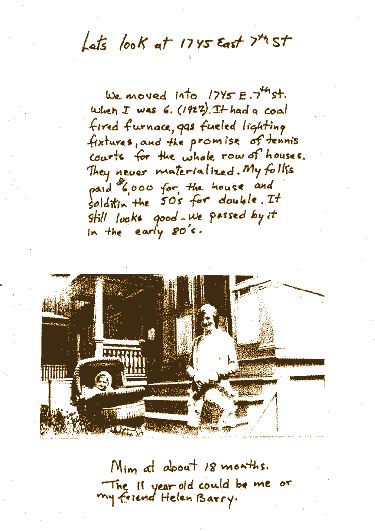 Lets look at 1745 East 7th St
We moved into 1745 E. 7th St.
when I was 6. (1922). It had a coal
fired furnace, gas fueled lighting
fixtures, and the promise of tennis
courts for the whole row of houses.
They never materialized. My folks
paid $6,000 for, the house and
sold it in the 50's for double. It
still looks good - we passed by it
in the early 80's.
Mim at about 18 months.
The 11 year old could be me or
my friend Helen Barry.